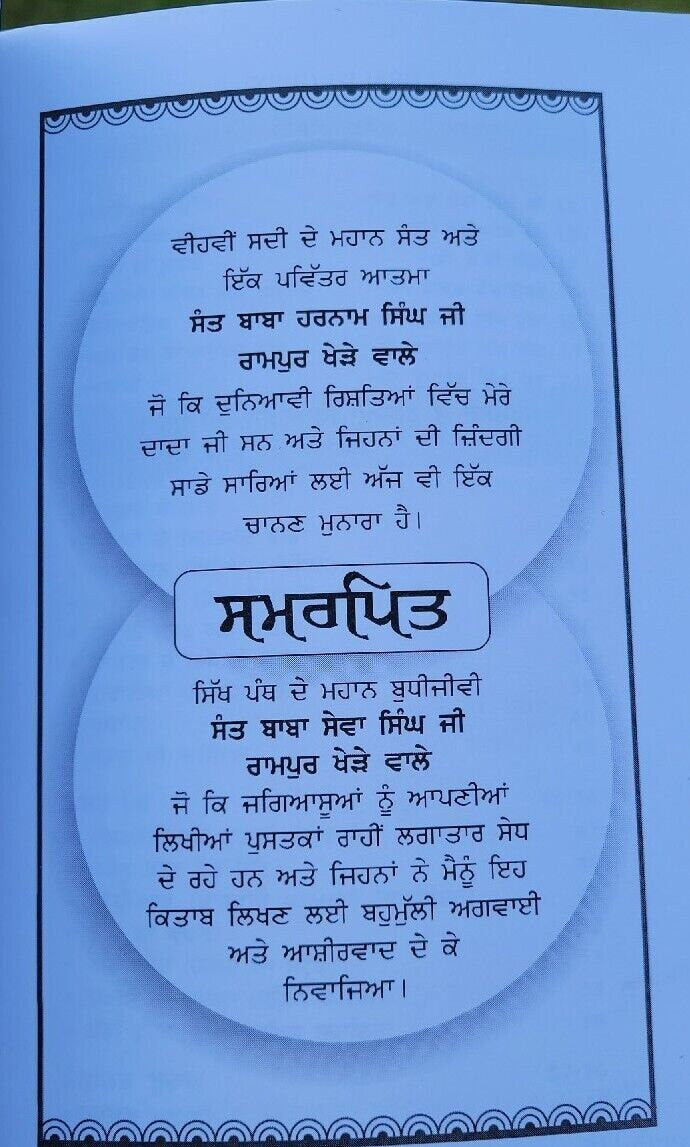 ਵੀਹਵੀਂ ਸਦੀ ਦੇ ਮਹਾਨ ਸੰਤ ਅਤੇ
ਇੱਕ ਪਵਿੱਤਰ ਆਤਮਾ
ਸੰਤ ਬਾਬਾ ਹਰਨਾਮ ਸਿੰਘ ਜੀ
ਰਾਮਪੁਰ ਖੇੜੇ ਵਾਲੇ
ਜੋ ਕਿ ਦੁਨਿਆਵੀ ਰਿਸ਼ਤਿਆਂ ਵਿੱਚ ਮੇਰੇ
ਦਾਦਾ ਜੀ ਸਨ ਅਤੇ ਜਿਹਨਾਂ ਦੀ ਜ਼ਿੰਦਗੀ
ਸਾਡੇ ਸਾਰਿਆਂ ਲਈ ਅੱਜ ਵੀ ਇੱਕ
ਚਾਨਣ ਮੁਨਾਰਾ ਹੈ।
ਸਮਰਪਿਤ
ਸਿੱਖ ਪੰਥ ਦੇ ਮਹਾਨ ਬੁਧੀਜੀਵੀ
ਸੰਤ ਬਾਬਾ ਸੇਵਾ ਸਿੰਘ ਜੀ
ਰਾਮਪੁਰ ਖੇੜੇ ਵਾਲੇ
ਜੋ ਕਿ ਜਗਿਆਸੂਆਂ ਨੂੰ ਆਪਣੀਆਂ
ਲਿਖੀਆਂ ਪੁਸਤਕਾਂ ਰਾਹੀਂ ਲਗਾਤਾਰ ਸੇਧ
ਦੇ ਰਹੇ ਹਨ ਅਤੇ ਜਿਹਨਾਂ ਨੇ ਮੈਨੂੰ ਇਹ
ਕਿਤਾਬ ਲਿਖਣ ਲਈ ਬਹੁਮੁੱਲੀ ਅਗਵਾਈ
ਅਤੇ ਆਸ਼ੀਰਵਾਦ ਦੇ ਕੇ
ਨਿਵਾਜਿਆ।